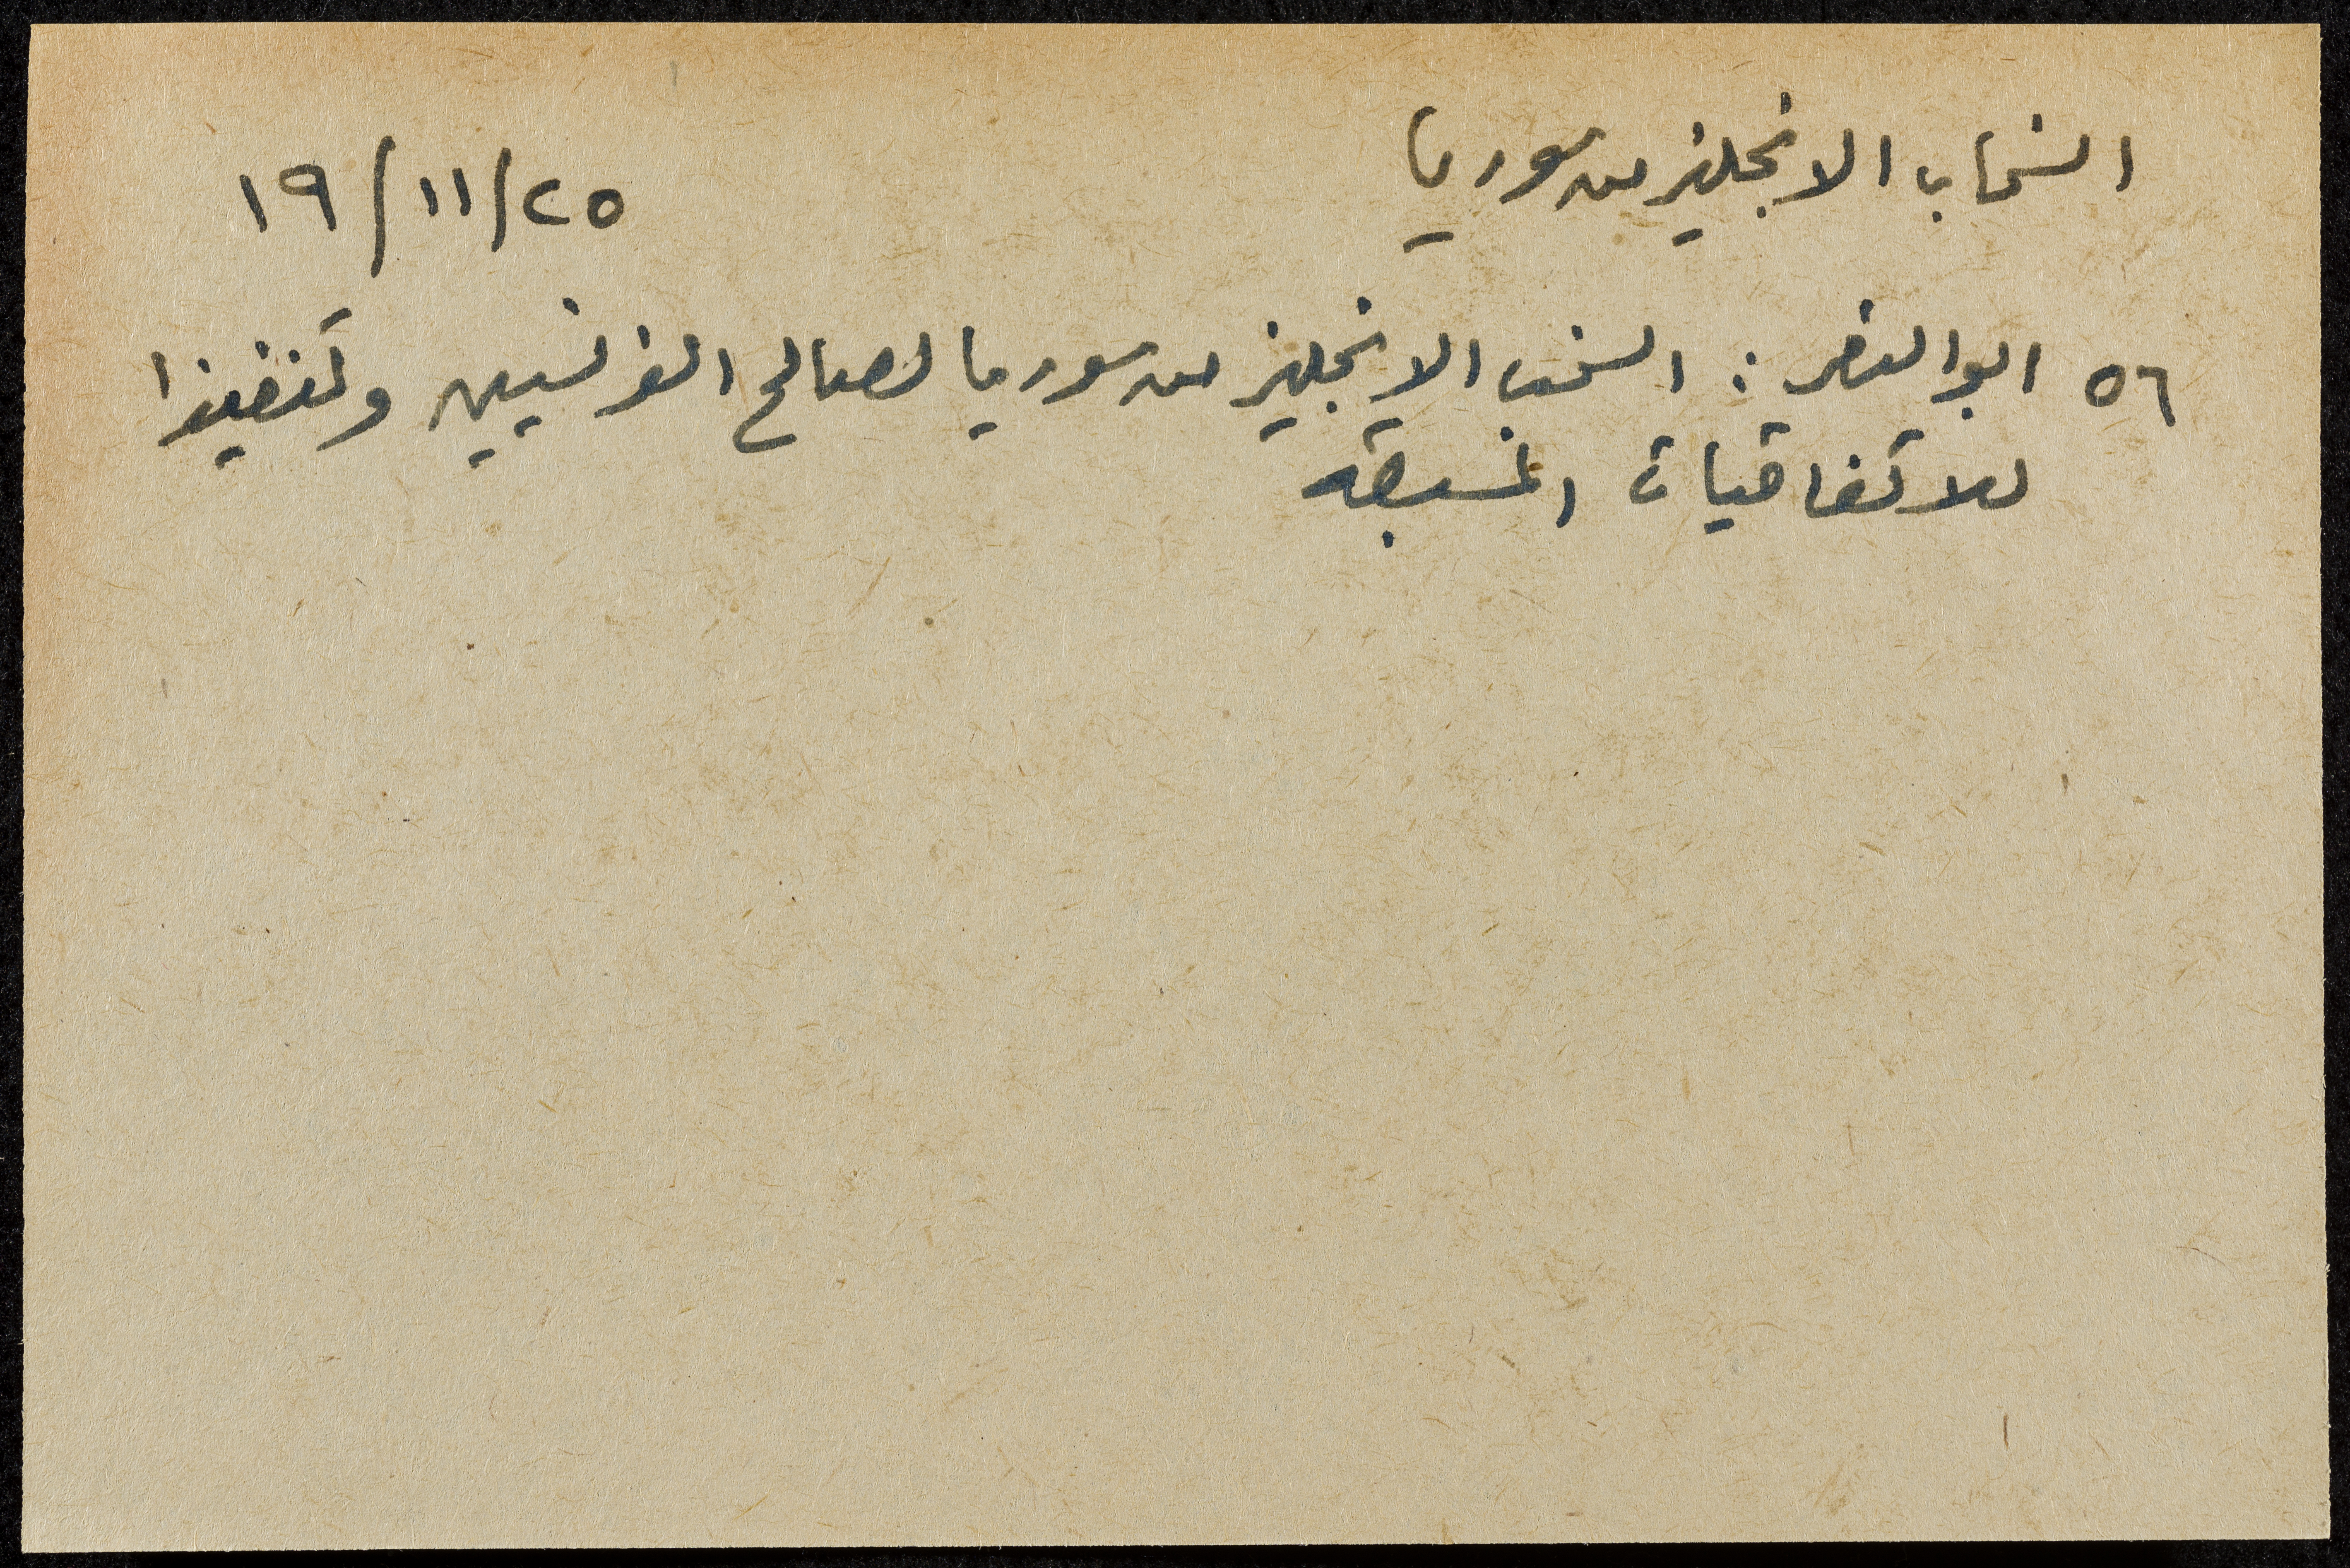 انسحاب الانجليز من سوريا
٢٥/١١/١٩
٥٦ ابو النصر : انسحب الانجليز من سوريا لصالح الفرنسيين وتنفيذا
للاتفاقيات المسبقه